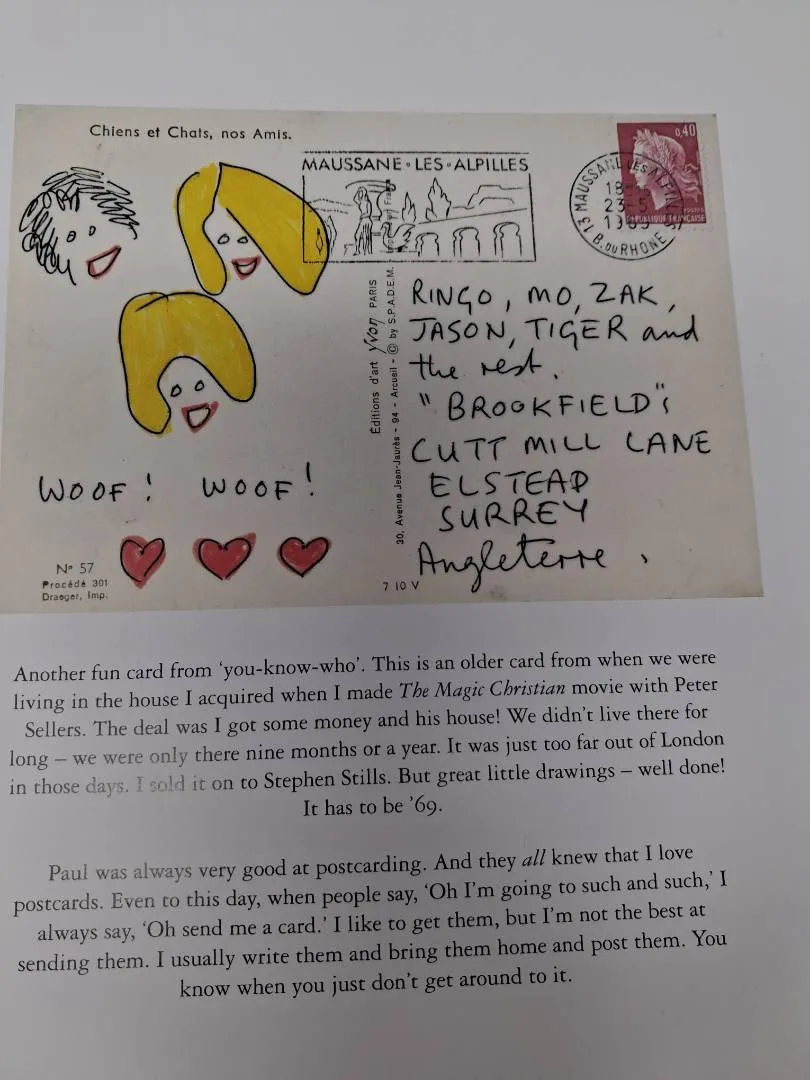 Chiens et Chats, nos Amis.
MAUSSANE·LES·ALPILLES
0,40
13 MAUSSANE LES
18
23-5
1969
B. DU RHONE
POSTES
REPUBLIQUE FRANÇAISE
WOOF! WOOF!
N° 57
Procédé 301
Draeger, Imp.
Éditions d'art Yvon PARIS
30, Avenue Jean-Jaurès - 94 - Arcueil - © by S.P.A.D.E.M.
7 10 V
RINGO, MO, ZAK,
JASON, TIGER and
the rest.
"BROOKFIELD";
CUTT MILL LANE
ELSTEAD
SURREY
Angleterre,
Another fun card from ‘you-know-who’. This is an older card from when we were
living in the house I acquired when I made The Magic Christian movie with Peter
Sellers. The deal was I got some money and his house! We didn’t live there for
long – we were only there nine months or a year. It was just too far out of London
in those days. I sold it on to Stephen Stills. But great little drawings – well done!
It has to be ’69.
Paul was always very good at postcarding. And they all knew that I love
postcards. Even to this day, when people say, ‘Oh I’m going to such and such,’ I
always say, ‘Oh send me a card.’ I like to get them, but I’m not the best at
sending them. I usually write them and bring them home and post them. You
know when you just don’t get around to it.